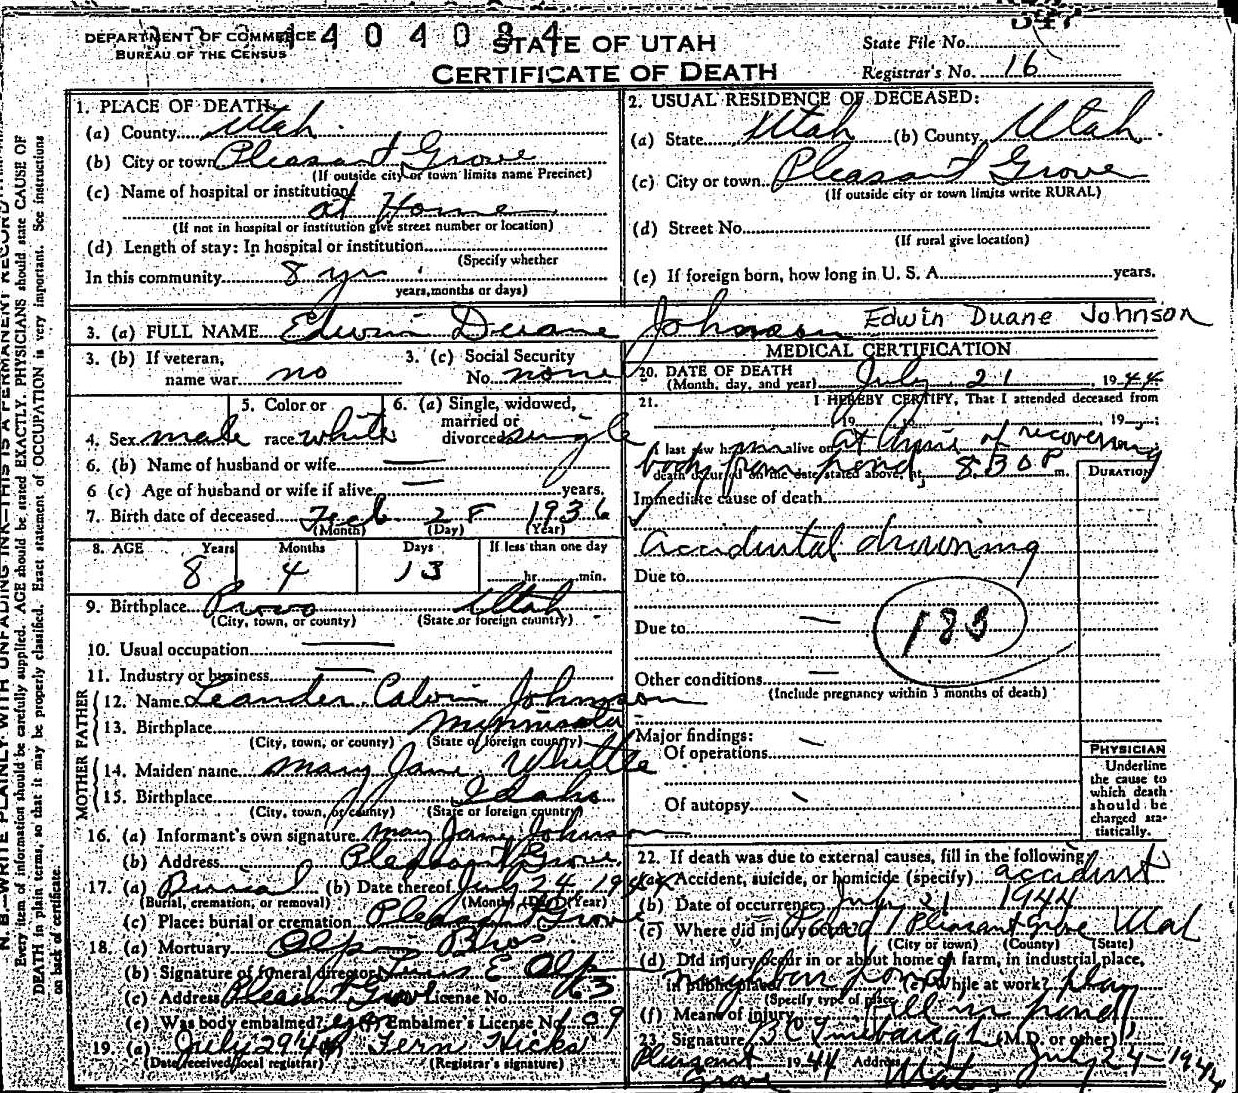 DEPARTMENT OF COMMERCE
BUREAU OF THE CENSUS
STATE OF UTAH
CERTIFICATE OF DEATH
State File No.
Registrar's No. 16
N. B.—WRITE PLAINLY WITH UNFADING INK—THIS IS A PERMANENT RECORD
Every item of information should be carefully supplied. AGE should be stated EXACTLY. PHYSICIANS should state CAUSE OF
DEATH in plain terms, so that it may be properly classified. Exact statement of OCCUPATION is very important. See instructions
on back of certificate.
1. PLACE OF DEATH
(a) County Utah
(b) City or town Pleasant Grove
(If outside city or town limits name Precinct)
(c) Name of hospital or institution
at Home
(If not in hospital or institution give street number or location)
(d) Length of stay: In hospital or institution
(Specify whether
In this community 8 yr
years, months or days)
2. USUAL RESIDENCE OF DECEASED:
(a) State Utah (b) County Utah
(c) City or town Pleasant Grove
(If outside city or town limits write RURAL)
(d) Street No.
(If rural give location)
(e) If foreign born, how long in U. S. A. years.
3. (a) FULL NAME Edwin Duane Johnson Edwin Duane Johnson
3. (b) If veteran, name war no
3. (c) Social Security No. none
4. Sex male
5. Color or race white
6. (a) Single, widowed, married or divorced single
6. (b) Name of husband or wife —
6 (c) Age of husband or wife if alive — years.
7. Birth date of deceased Feb. 28 1936
(Month) (Day) (Year)
8. AGE Years Months Days If less than one day
8 4 13 hr. min.
9. Birthplace Provo Utah
(City, town, or county) (State or foreign country)
10. Usual occupation —
11. Industry or business —
FATHER
12. Name Leander Calvin Johnson
13. Birthplace Minnisota
(City, town, or county) (State or foreign country)
MOTHER
14. Maiden name Mary Jane Whittle
15. Birthplace Idaho
(City, town, or county) (State or foreign country)
16. (a) Informant's own signature Mary Jane Johnson
(b) Address Pleasant Grove
17. (a) Burial (b) Date thereof July 24, 1944
(Burial, cremation, or removal) (Month) (Day) (Year)
(c) Place: burial or cremation Pleasant Grove
18. (a) Mortuary Olpin Bros
(b) Signature of funeral director E Olpin
(c) Address Pleasant Grove License No. 63
(e) Was body embalmed? yes (f) Embalmer's License No. 109
19. (a) July 29 44 Fern Hicks
(Date received local registrar) (Registrar's signature)
MEDICAL CERTIFICATION
20. DATE OF DEATH
(Month, day, and year) July 21, 1944
21. I HEREBY CERTIFY, That I attended deceased from
, 19 , 19
I last saw him alive on at time of recovering
body from pond
death occurred on the date stated above, at 8:30 P m.
DURATION
Immediate cause of death
Accidental drowning
Due to
Due to —
183
Other conditions —
(Include pregnancy within 3 months of death)
Major findings:
Of operations
Of autopsy
PHYSICIAN
Underline
the cause to
which death
should be
charged sta-
tistically.
22. If death was due to external causes, fill in the following
(a) Accident, suicide, or homicide (specify) accident
(b) Date of occurrence July 21 1944
(c) Where did injury occur? Pleasant Grove Utah
(City or town) (County) (State)
(d) Did injury occur in or about home or farm, in industrial place,
in public place? neighbor pond (e) While at work? play
(Specify type of place)
(f) Means of injury fell in pond
23. Signature (M.D. or other)
Pleasant Grove 1944 Address Utah July 24-1944